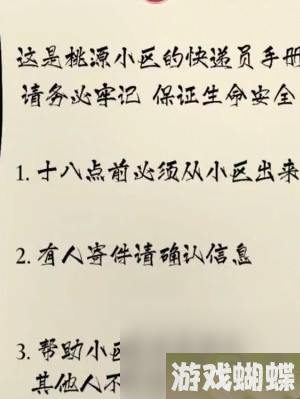 这是桃源小区的快递员手册
请务必牢记 保证生命安全
1. 十八点前必须从小区出来
2. 有人寄件请确认信息
3. 帮助小区
其他人不
游戏蝴蝶